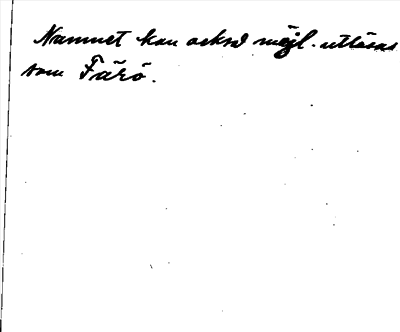 Namnet kan också möjl. utläsas
som Färö.